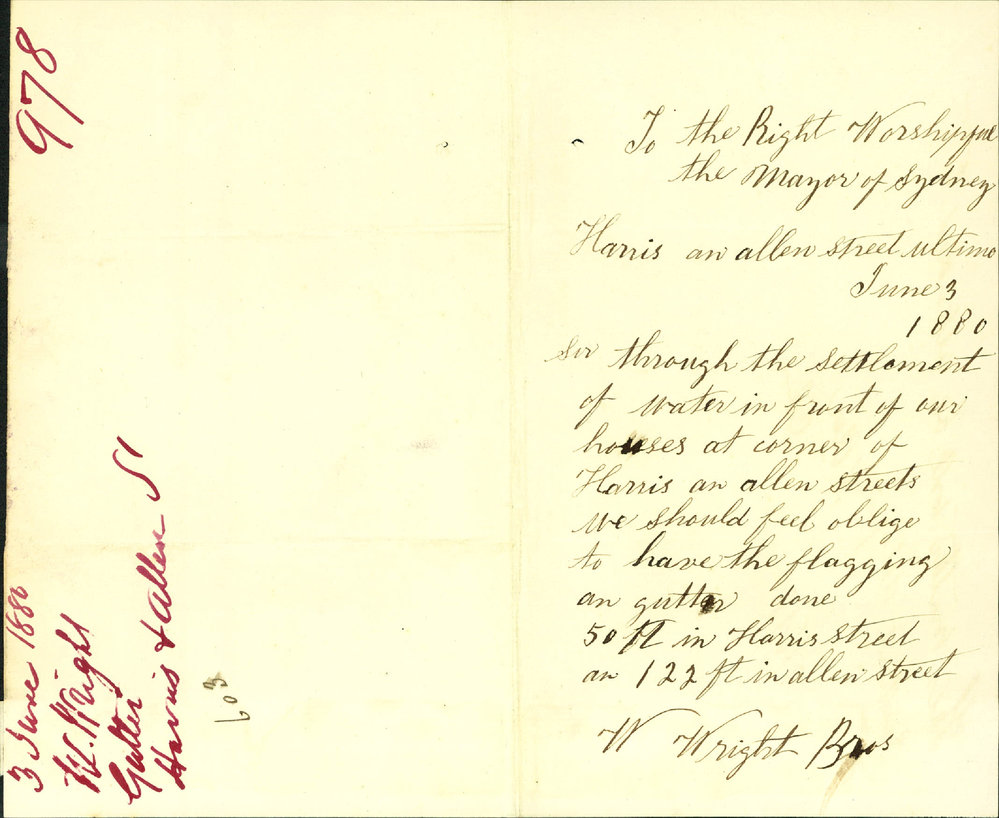 To the Right Worshipful
the Mayor of Sydney
Harris an allen street ultimo
June 3
1880
Sir through the settlement
of water in front of our
houses at corner of
Harris an allen streets
we should feel oblige
to have the flagging
an gutter done
50 ft in Harris street
an 122 ft in allen street
W Wright Bros
978
3 June 1880
W. Wright
Gutter
Harris & Allen St
603